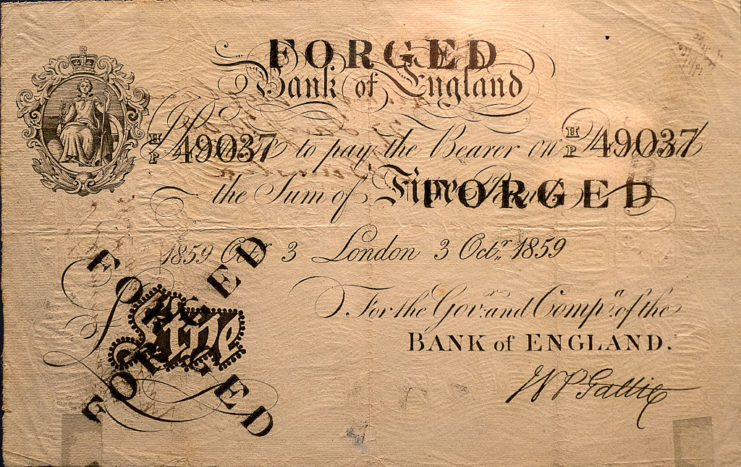 FORGED
Bank of England
H/P 49037 to pay the Bearer on H/P 49037
the Sum of Five FORGED
1859 Octr. 3 London 3 Octr. 1859
For the Govr. and Compa. of the
BANK of ENGLAND.
FORGED
Five
FORGED